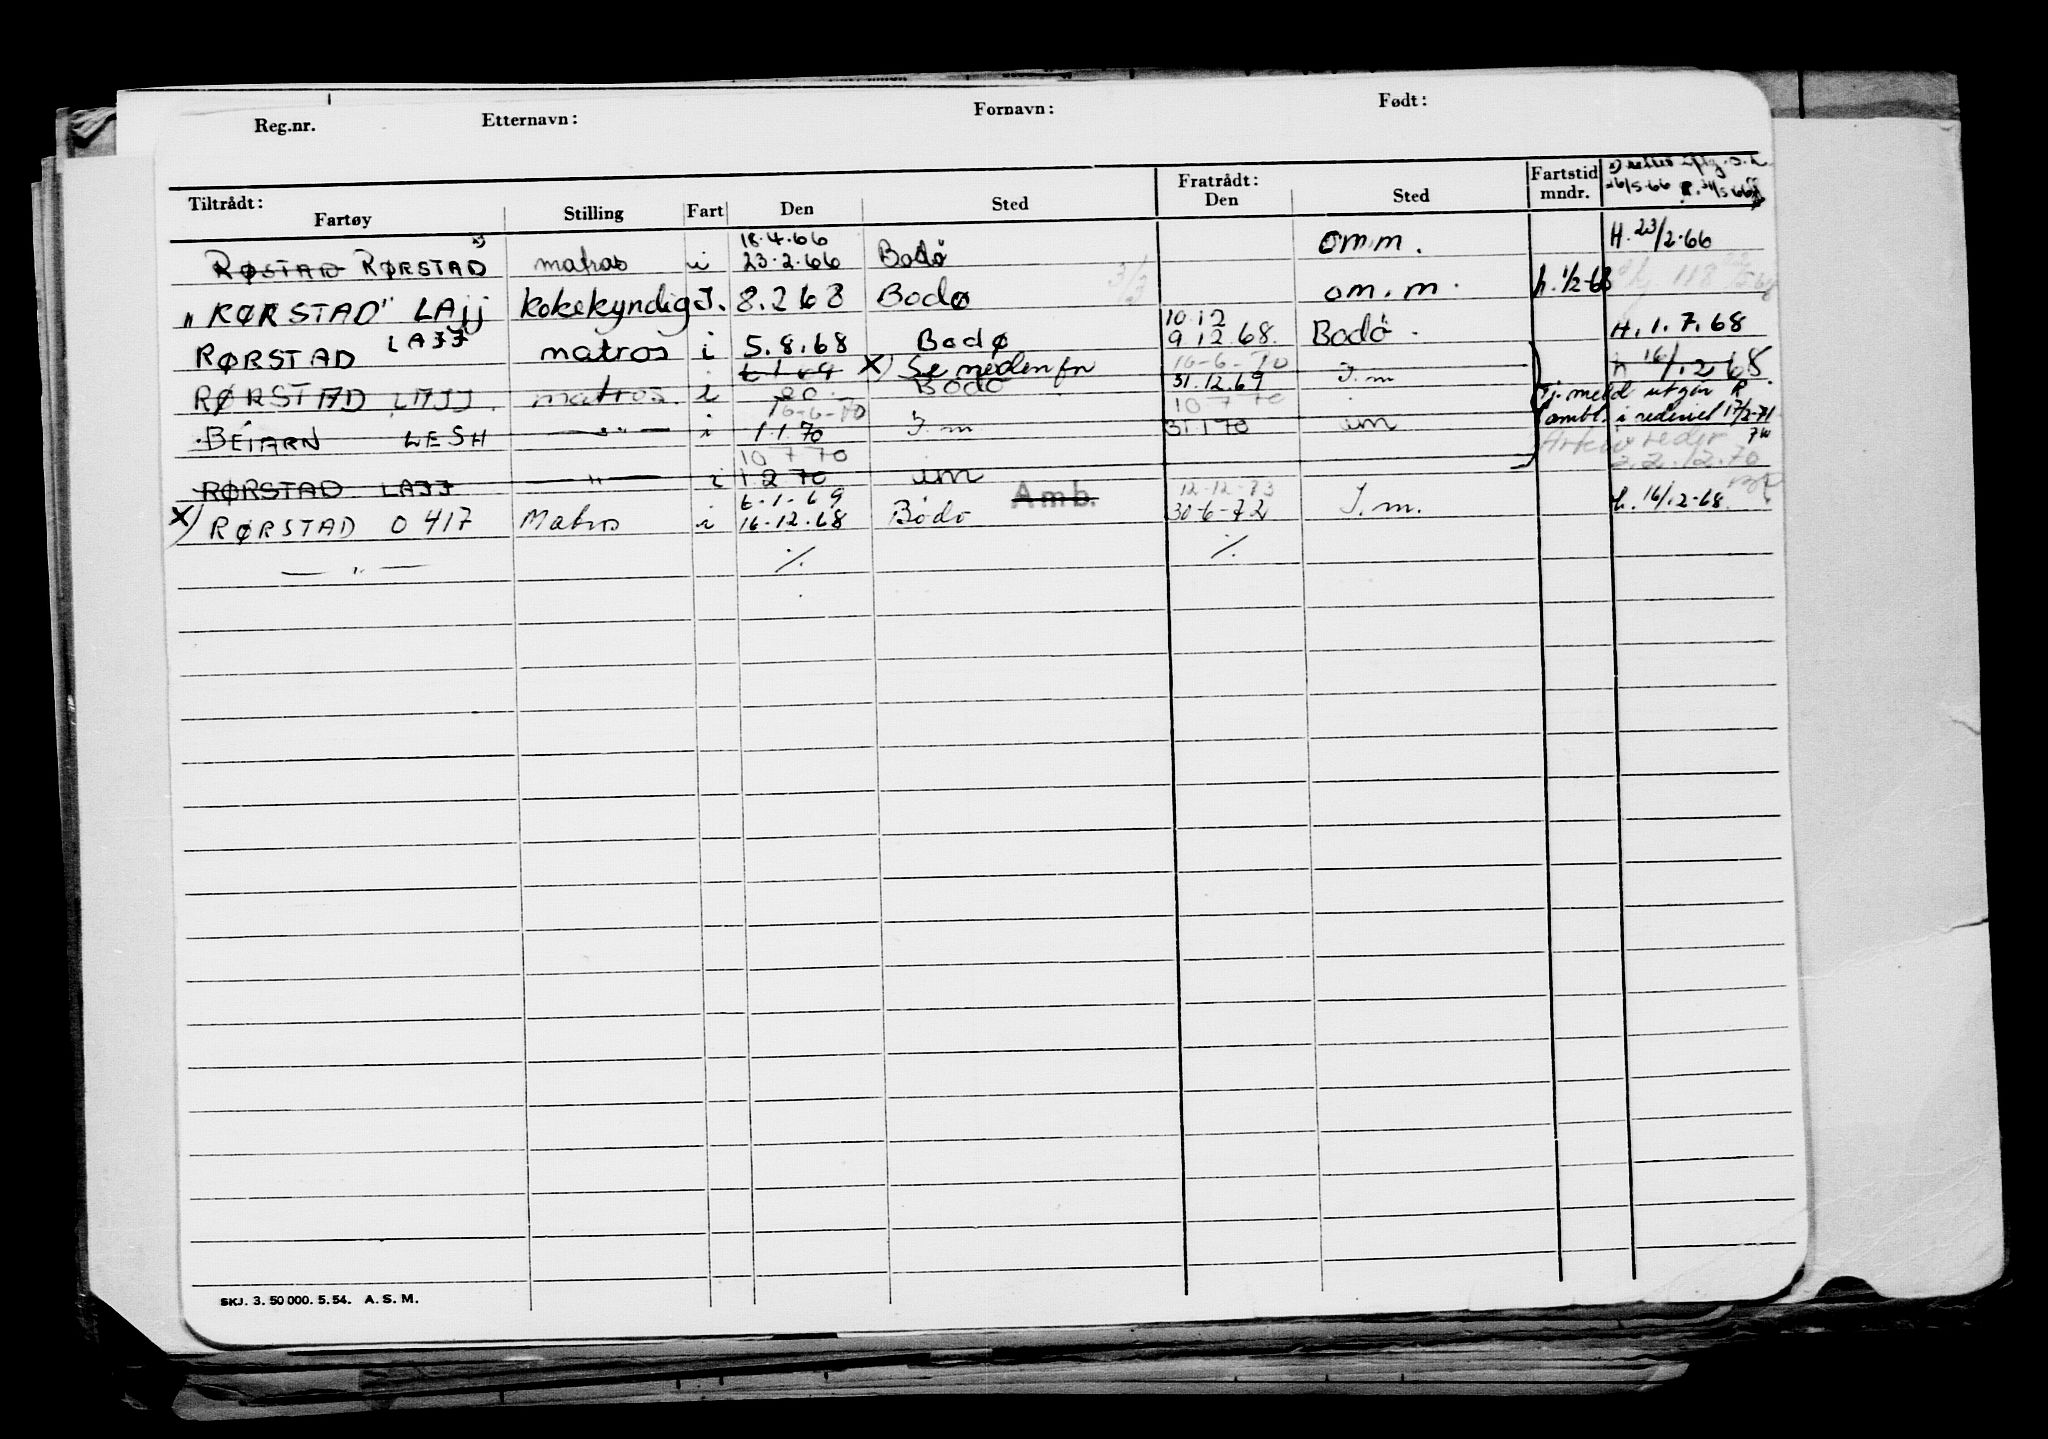 Reg.nr. Etternavn: Fornavn: Født:
Tiltrådt: Fratrådt: Fartstid
Fartøy Stilling Fart Den Sted Den Sted mndr. 26/5-66 31/5 66
18.4.66
RØSTAD RØRSTAD x) matros i 23.2.66 Bodø omm. H. 23/2-66
"RØRSTAD" LAJJ kokekyndig I. 8.2 68 Bodø 3/3 om.m. h. 1/2-68
LAJJ 10.12
RØRSTAD matros i 5.8.68 Bodø 9.12.68. Bodø. H. 1.7.68
x) Se nedenfor 16-6-70 h 16/12 68
RØRSTAD LAJJ. matros. i Bodø 31.12.69 I.m Fj. meld utgår R.
16-6-70 10 7 70 ombl. i rederiet 17/2-71
BEIARN LESH — " — i 1.1.70 I.m 31 1 70 i.m
10 7 70
RØRSTAD LAJJ — " — i 1 2 70 i.m 2.12.70
6-1-69 Amb. 12-12-73
x) RØRSTAD O 417 Matros i 16-12-68 Bodø 30-6-72 I.m. h. 16/12-68.
— " — ·/. ·/.
SKJ. 3. 50 000. 5. 54. A. S. M.